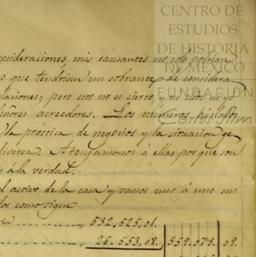 CENTRO DE
ESTUDIOS
DE HISTORIA
DE MEXICO
FUNDACIÓN
consideraciones, mis causantes no solo podrian
que tendrian un sobrante de considera
laciones; pero esto no es cierto, y no
señores acreedores. Los números
la practica de negocios y la situacion ge
diversa. Atengamonos á ellos porque son
á la verdad.
l activo de la casa y vemos uno á uno sus
los como sigue
532,525.01.
26.553,08. 559.078.09.